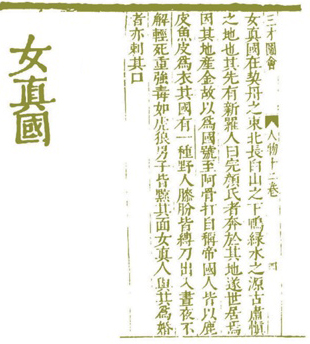 三才圖會
人物十二卷
女真國在契丹之東北長白山之下鴨綠水之源古肅慎
之地也其先有新羅人曰完顏氏者奔於其地遂世居焉
因其地産金故以爲國號至阿骨打自稱帝國人皆以鹿
皮魚皮爲衣其國有一種野人膝脛皆縛刀出入晝夜不
解輕死重強毒如虎狼男子皆黥其面女真人與其爲婚
者亦刺其口
女真國